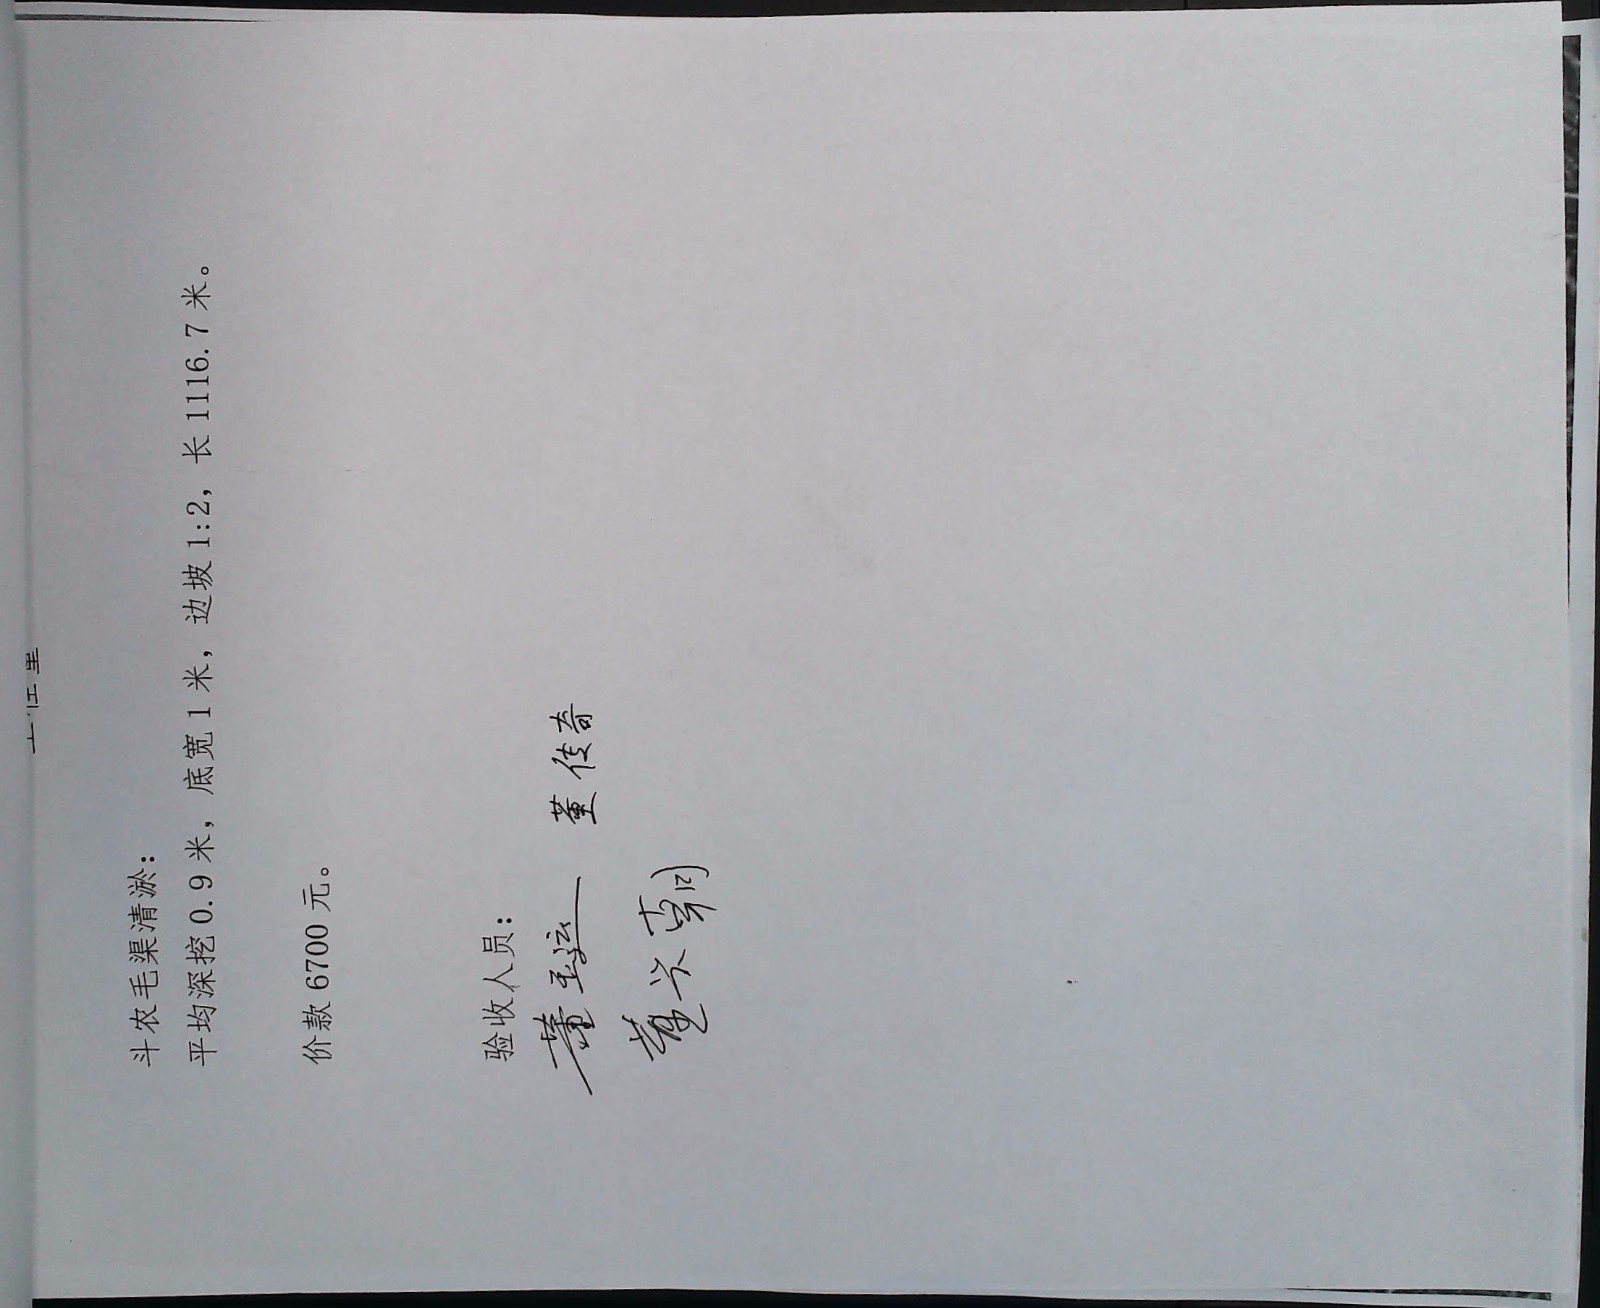 工程量
斗农毛渠清淤：
平均深挖 0.9 米，底宽 1 米，边坡 1:2，长 1116.7 米。
价款 6700 元。
验收人员：
董玉运 董传奇
董兴朝